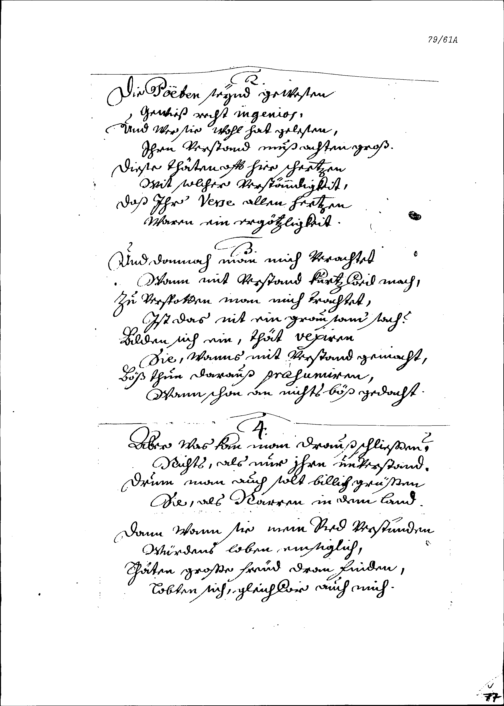 79/61A
2.
Die Poëten seynd gewesen
Gewiß recht ingenios,
Und wer sie wohl hat gelesen,
Ihren Verstand muß achten groß.
Diese thäten oft hier schertzen
Mit solcher Verständigkeit,
daß Ihr Verse allen Hertzen
Waren ein ergötzligkeit.
3.
Und dannoch man mich Verachtet
Wann mit Verstand kurtz mach,
Zu Verspotten man mich trachtet,
Ist das nit ein grausam sach?
Bilden sich ein, thät vexiren
Sie, wanns mit Verstand gemacht,
Böß thun darauß præsumiren,
Wann schon an nichts böß gedacht.
4.
Aber was kan man drauß schließen?
Nichts, als nur ihren unverstand.
Drum man auch solt billig grüssen
Sie, als Narren in dem land.
Dann wann sie mein Lied Verstünden
Würdens loben einsiglich,
Thäten große freud dran finden,
Lobten sich, gleich wie auch mich.
77